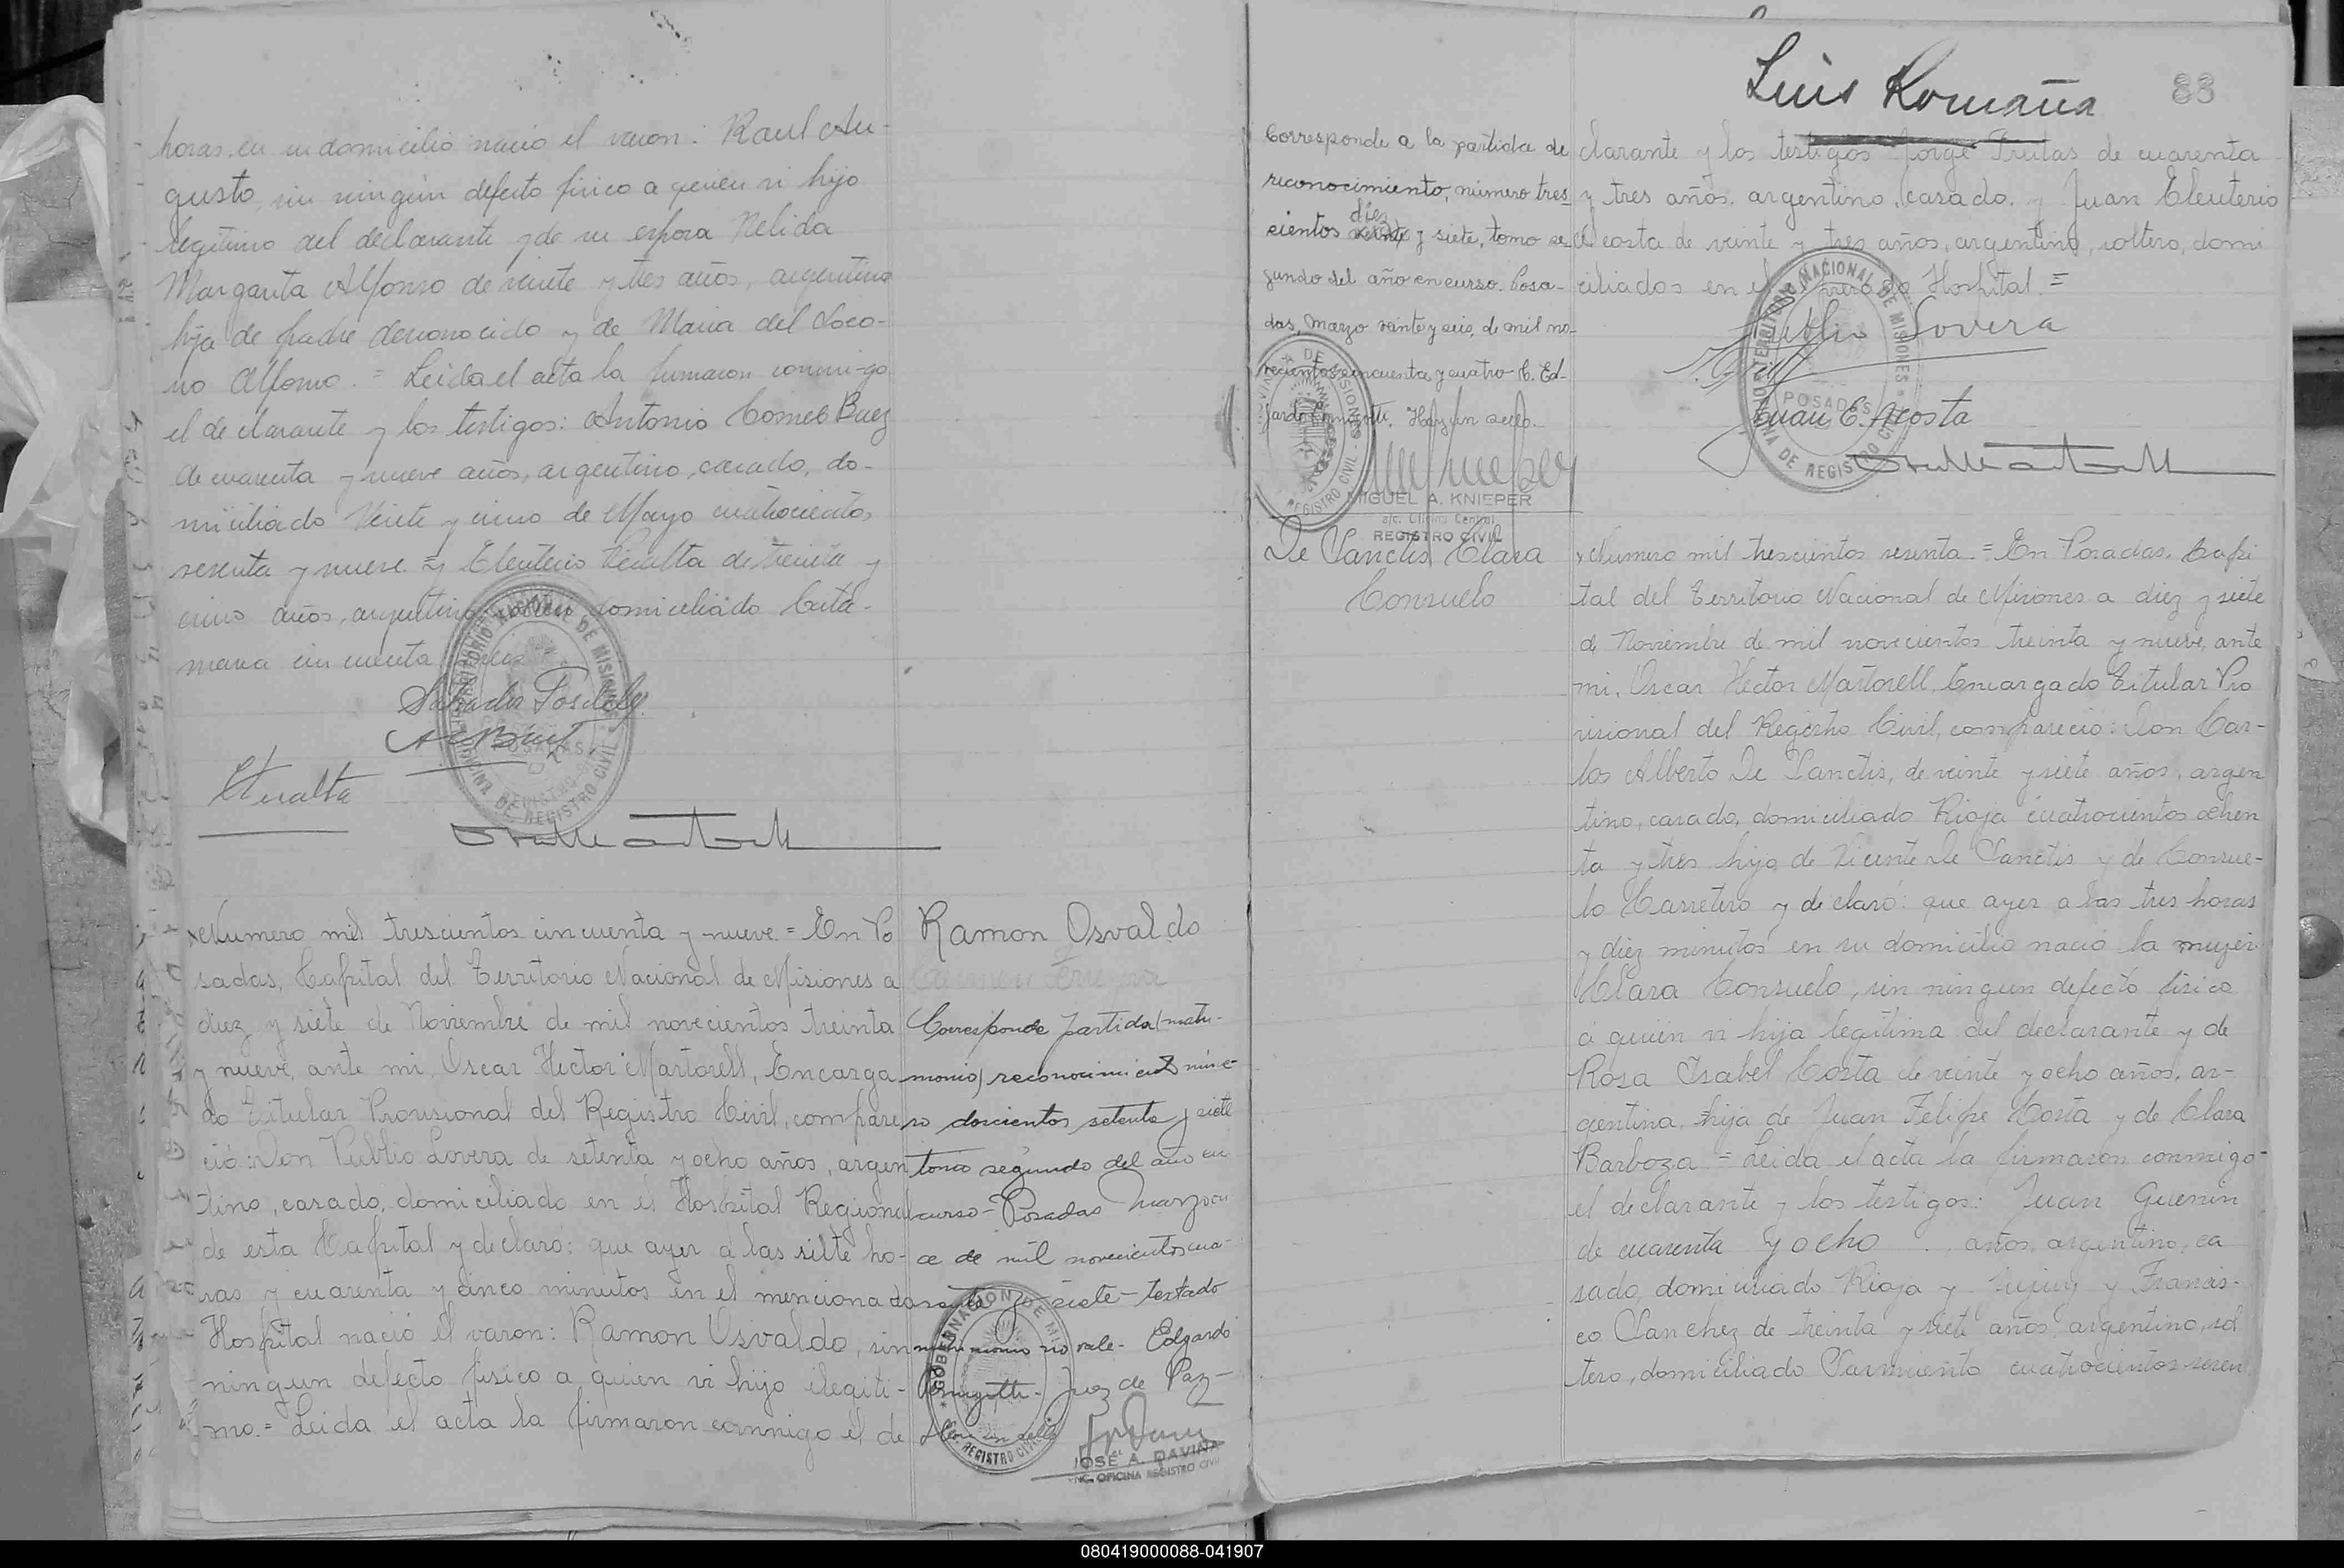 horas, en su domicilio nació el varon: Raul Au-
gusto, sin ningún defecto fisico a quien vi hijo
legitimo del declarante y de su esposa Nelida
Margarita Alfonso de veinte y tres años, argentina
hija de padre desconocido y de Maria del Soco-
rro Alfonso. = Leida el acta la firmaron conmigo
el declarante y los testigos: Antonio Gomes Baez
de cuarenta y nueve años, argentino, casado, do-
miciliado Veinte y cinco de Mayo cuatrocientos
sesenta y nueve = y Eleuterio Peralta de treinta y
cinco años, argentino, domiciliado Cata-
marca cincuenta
TERRITORIO NACIONAL DE MISIONES
POSADAS
OFICINA DE REGISTRO CIVIL
EPeralta
x Numero mil trescientos cincuenta y nueve = En Po
sadas, Capital del Territorio Nacional de Misiones a
diez y siete de Noviembre de mil novecientos treinta
y nueve, ante mi, Oscar Hector Martorell, Encarga
do Titular Provisional del Registro Civil, compare
ció: Don Publio Lovera de setenta y ocho años, argen
tino, casado, domiciliado en el Hospital Regional
de esta Capital y declaró: que ayer a las siete ho-
ras y cuarenta y cinco minutos en el mencionado
Hospital nació el varon: Ramon Osvaldo, sin
ningun defecto fisico a quien vi hijo ilegiti-
mo. = Leida el acta la firmaron conmigo el de
Ramon Osvaldo
Corresponde partida (matri-
monio) reconocimiento núme-
ro doscientos setenta y siete
tomo segundo del año en
curso - Posadas marzo on
ce de mil novecientos cua-
renta y siete - testado
matrimonio no vale - Edgardo
Juez de Paz -
Hay un sello
GOBERNACION DE MISIONES
REGISTRO CIVIL
JOSE A. DAVIÑA
ENC. OFICINA REGISTRO CIVIL
Luis Romaña
83
Corresponde a la partida de
reconocimiento, número tres-
cientos diez y siete, tomo se-
gundo del año en curso. Posa-
das, marzo veinte y seis, de mil no-
vecientos cincuenta y cuatro - C. Ed-
gardo Hay un sello.
MISIONES
REGISTRO CIVIL
MIGUEL A. KNIEPER
a/c. Oficina Central
REGISTRO CIVIL
clarante y los testigos Jorge Freitas de cuarenta
y tres años, argentino, casado, y Juan Eleuterio
Acosta de veinte y tres años, argentino, soltero, domi
ciliados en el mencionado Hospital =
Publio Lovera
Juan E. Acosta
TERRITORIO NACIONAL DE MISIONES
POSADAS
OFICINA DE REGISTRO CIVIL
De Sanctis Clara
Consuelo
x Numero mil trescientos sesenta = En Posadas, Capi
tal del Territorio Nacional de Misiones a diez y siete
de Noviembre de mil novecientos treinta y nueve, ante
mi, Oscar Hector Martorell, Encargado Titular Pro
visional del Registro Civil, compareció: Don Car-
los Alberto De Sanctis, de veinte y siete años, argen
tino, casado, domiciliado Rioja cuatrocientos ochen
ta y tres, hijo de Vicente De Sanctis y de Consue-
lo Carretero y declaró: que ayer a las tres horas
y diez minutos en su domicilio nació la mujer
Clara Consuelo, sin ningun defecto fisico
a quien vi hija legitima del declarante y de
Rosa Isabel Costa de veinte y ocho años, ar-
gentina, hija de Juan Felipe Costa y de Clara
Barboza = Leida el acta la firmaron conmigo
el declarante y los testigos: Juan Guenin
de cuarenta y ocho años, argentino, ca
sado, domiciliado Rioja y Jujuy y Francis-
co Sanchez de treinta y siete años, argentino, sol
tero, domiciliado Sarmiento cuatrocientos sesen
080419000088-041907